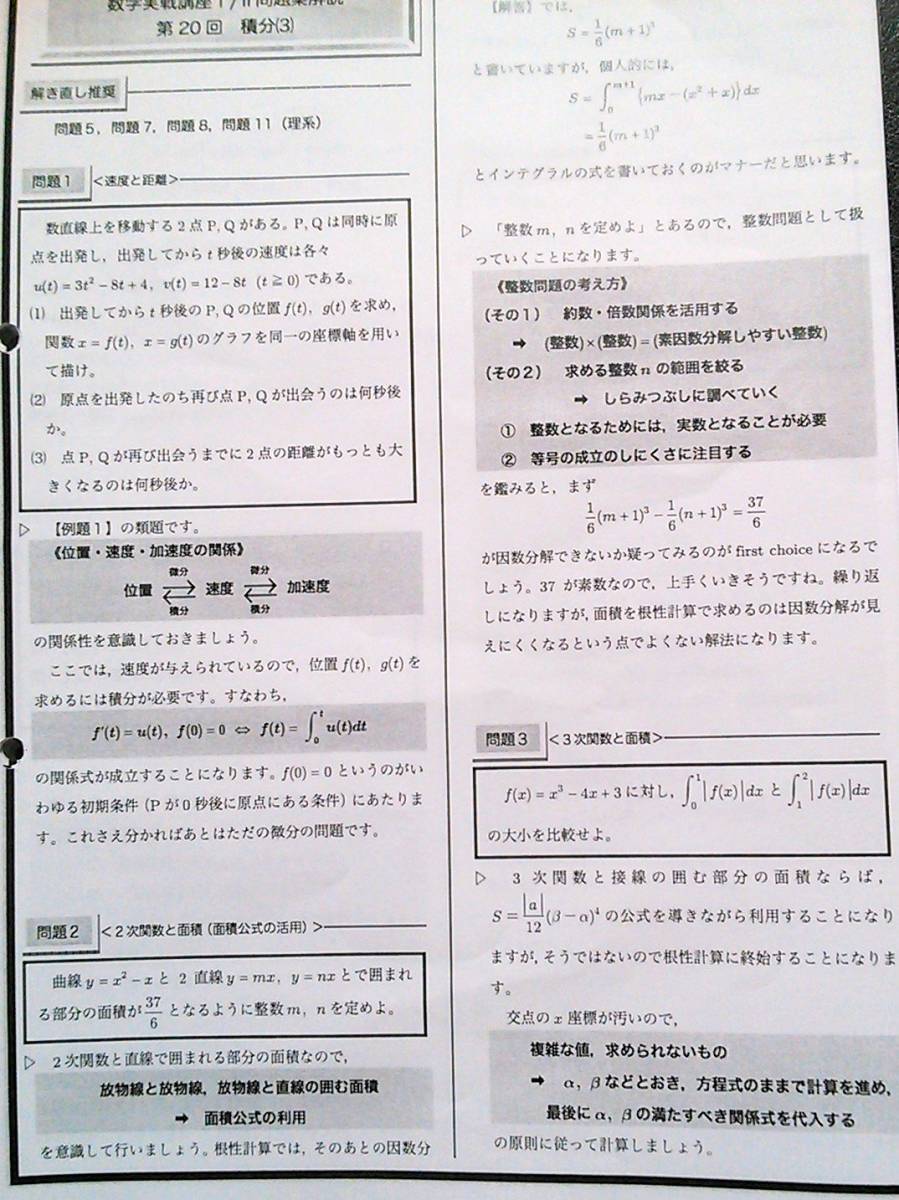 数学実戦講座Ⅰ/Ⅱ問題集解説
第20回 積分(3)
解き直し推奨
問題5，問題7，問題8，問題11（理系）
問題1 <速度と距離>
数直線上を移動する2点P, Qがある。P, Qは同時に原
点を出発し，出発してからt秒後の速度は各々
u(t)=3t²−8t+4，v(t)=12−8t (t≧0)である。
(1) 出発してからt秒後のP, Qの位置f(t)，g(t)を求め，
関数x=f(t)，x=g(t)のグラフを同一の座標軸を用い
て描け。
(2) 原点を出発したのち再び点P, Qが出会うのは何秒後
か。
(3) 点P, Qが再び出会うまでに2点の距離がもっとも大
きくなるのは何秒後か。
▷ 【例題1】の類題です。
《位置・速度・加速度の関係》
微分 微分
位置 ⇄ 速度 ⇄ 加速度
積分 積分
の関係性を意識しておきましょう。
ここでは，速度が与えられているので，位置f(t)，g(t)を
求めるには積分が必要です。すなわち，
f'(t)=u(t)，f(0)=0 ⇔ f(t)=∫₀ᵗu(t)dt
の関係式が成立することになります。f(0)=0というのがい
わゆる初期条件（Pが0秒後に原点にある条件）にあたりま
す。これさえ分かればあとはただの微分の問題です。
問題2 <2次関数と面積（面積公式の活用）>
曲線y=x²−xと2直線y=mx，y=nxとで囲まれ
る部分の面積が37/6となるように整数m，nを定めよ。
▷ 2次関数と直線で囲まれる部分の面積なので，
放物線と放物線，放物線と直線の囲む面積
➡ 面積公式の利用
を意識して行いましょう。根性計算では，そのあとの因数分
【解答】では，
S=1/6(m+1)³
と書いていますが，個人的には，
S=∫₀ᵐ⁺¹{mx−(x²+x)}dx
=1/6(m+1)³
とインテグラルの式を書いておくのがマナーだと思います。
▷ 「整数m，nを定めよ」とあるので，整数問題として扱
っていくことになります。
《整数問題の考え方》
（その1） 約数・倍数関係を活用する
➡ (整数)×(整数)=(素因数分解しやすい整数)
（その2） 求める整数nの範囲を絞る
➡ しらみつぶしに調べていく
① 整数となるためには，実数となることが必要
② 等号の成立のしにくさに注目する
を鑑みると，まず
1/6(m+1)³−1/6(n+1)³=37/6
が因数分解できないか疑ってみるのがfirst choiceになるで
しょう。37が素数なので，上手くいきそうですね。繰り返
しになりますが，面積を根性計算で求めるのは因数分解が見
えにくくなるという点でよくない解法になります。
問題3 <3次関数と面積>
f(x)=x³−4x+3に対し，∫₀¹|f(x)|dxと∫₁²|f(x)|dx
の大小を比較せよ。
▷ 3次関数と接線の囲む部分の面積ならば，
S=|a|/12(β−α)⁴の公式を導きながら利用することになり
ますが，そうではないので根性計算に終始することになりま
す。
交点のx座標が汚いので，
複雑な値，求められないもの
➡ α，βなどとおき，方程式のままで計算を進め，
最後にα，βの満たすべき関係式を代入する
の原則に従って計算しましょう。